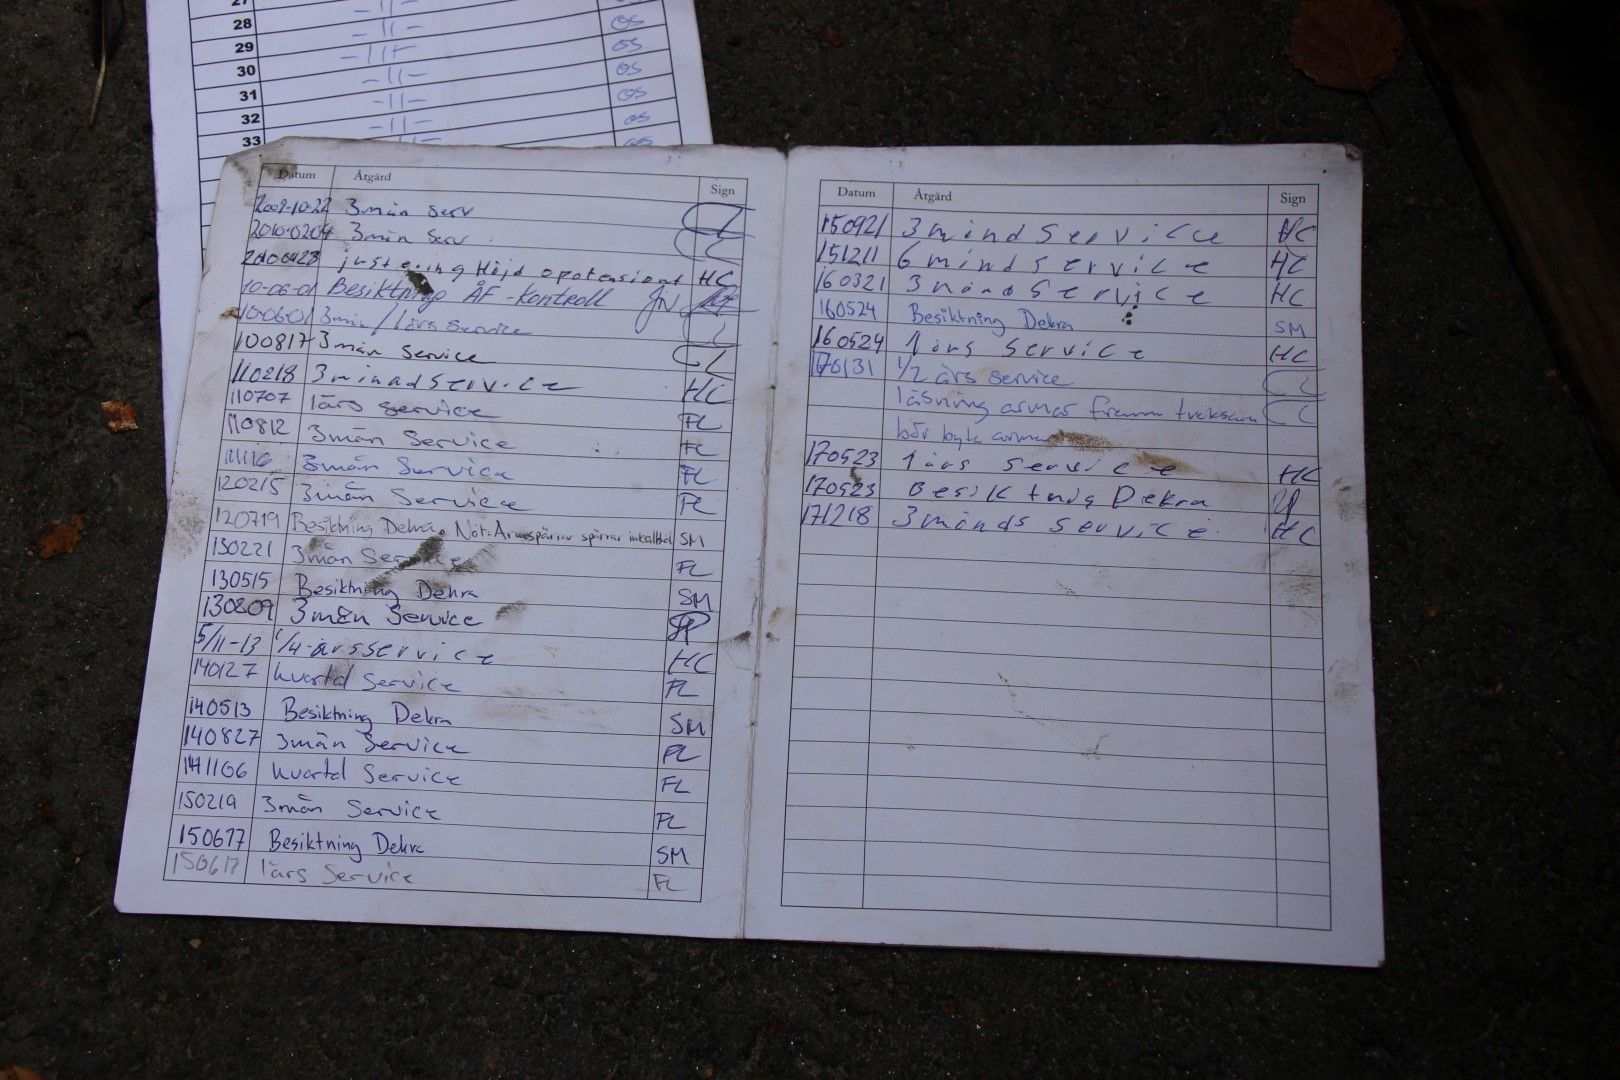 27 -11-
28 -11- OS
29 -11- OS
30 -11- OS
31 -11- OS
32 -11- OS
33 -11- OS
Datum Åtgärd Sign
2009-10-22 3mån serv
20100204 3mån serv
20100428 justering Höjd opotensiomt HC
10-06-01 Besiktning ÅF-kontroll
10-06-01 3mån/1års service
100817 3mån service
110218 3månadservice HC
110707 1års service FL
110812 3mån service FL
111116 3mån Service FL
120215 3mån Service FL
120719 Besiktning Dekra. Not: spärrar SM
130221 3mån Service FL
130515 Besiktning Dekra SM
130809 3mån Service
5/11-13 1/4-årsservice HC
140127 kvartal service FL
140513 Besiktning Dekra SM
140827 3mån Service FL
141106 kvartal Service FL
150219 3mån Service FL
150617 Besiktning Dekra SM
150617 1års Service FL
Datum Åtgärd Sign
150921 3måndservice HC
151211 6måndservice HC
160321 3månadservice HC
160524 Besiktning Dekra SM
160524 1års service HC
170131 1/2 års service
låsning armar framm tveksam
bör byta armar
170523 1års service HC
170523 Besiktnig Dekra
171218 3månds service HC